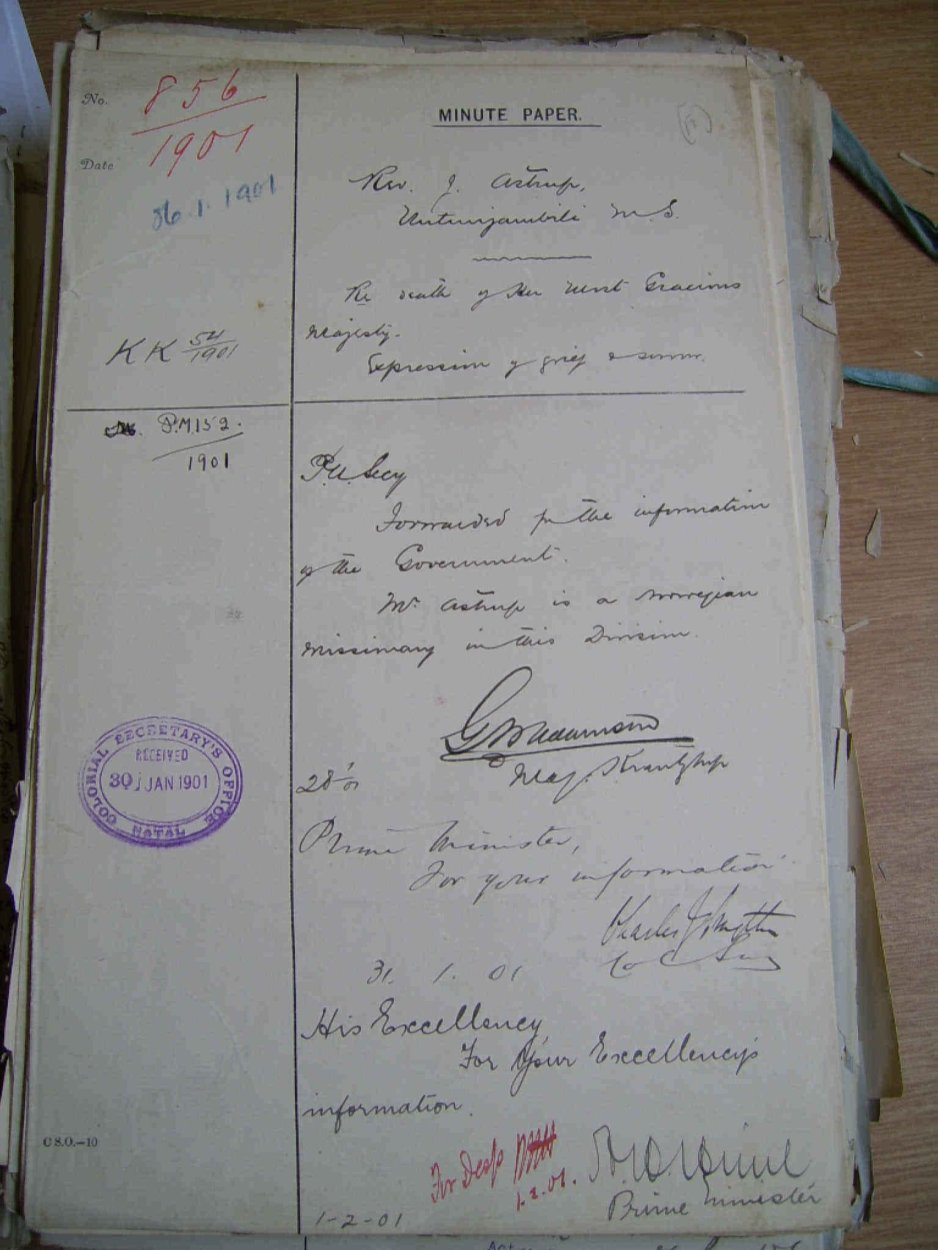 No. 856
1901
Date
26.1.1901
KK 54/1901
P.M. 152.
1901
COLONIAL SECRETARY'S OFFICE
RECEIVED
30 JAN 1901
NATAL
C S.O.—10
MINUTE PAPER.
Rev. J. Astrup,
Untunjambili M.S.
Re death of Her Most Gracious
Majesty.
Expression of grief & sorrow.
P.U. Secy
Forwarded for the information
of the Government.
Mr. Astrup is a Norwegian
Missionary in this Division.
Mag. Krantzkop
28/1/01
Prime Minister,
For your information
Charles J Smythe
Col. Secy
31. 1. 01
His Excellency
For Your Excellency's
information.
For Desp
1.2.01.
A H Hime
Prime Minister
1-2-01